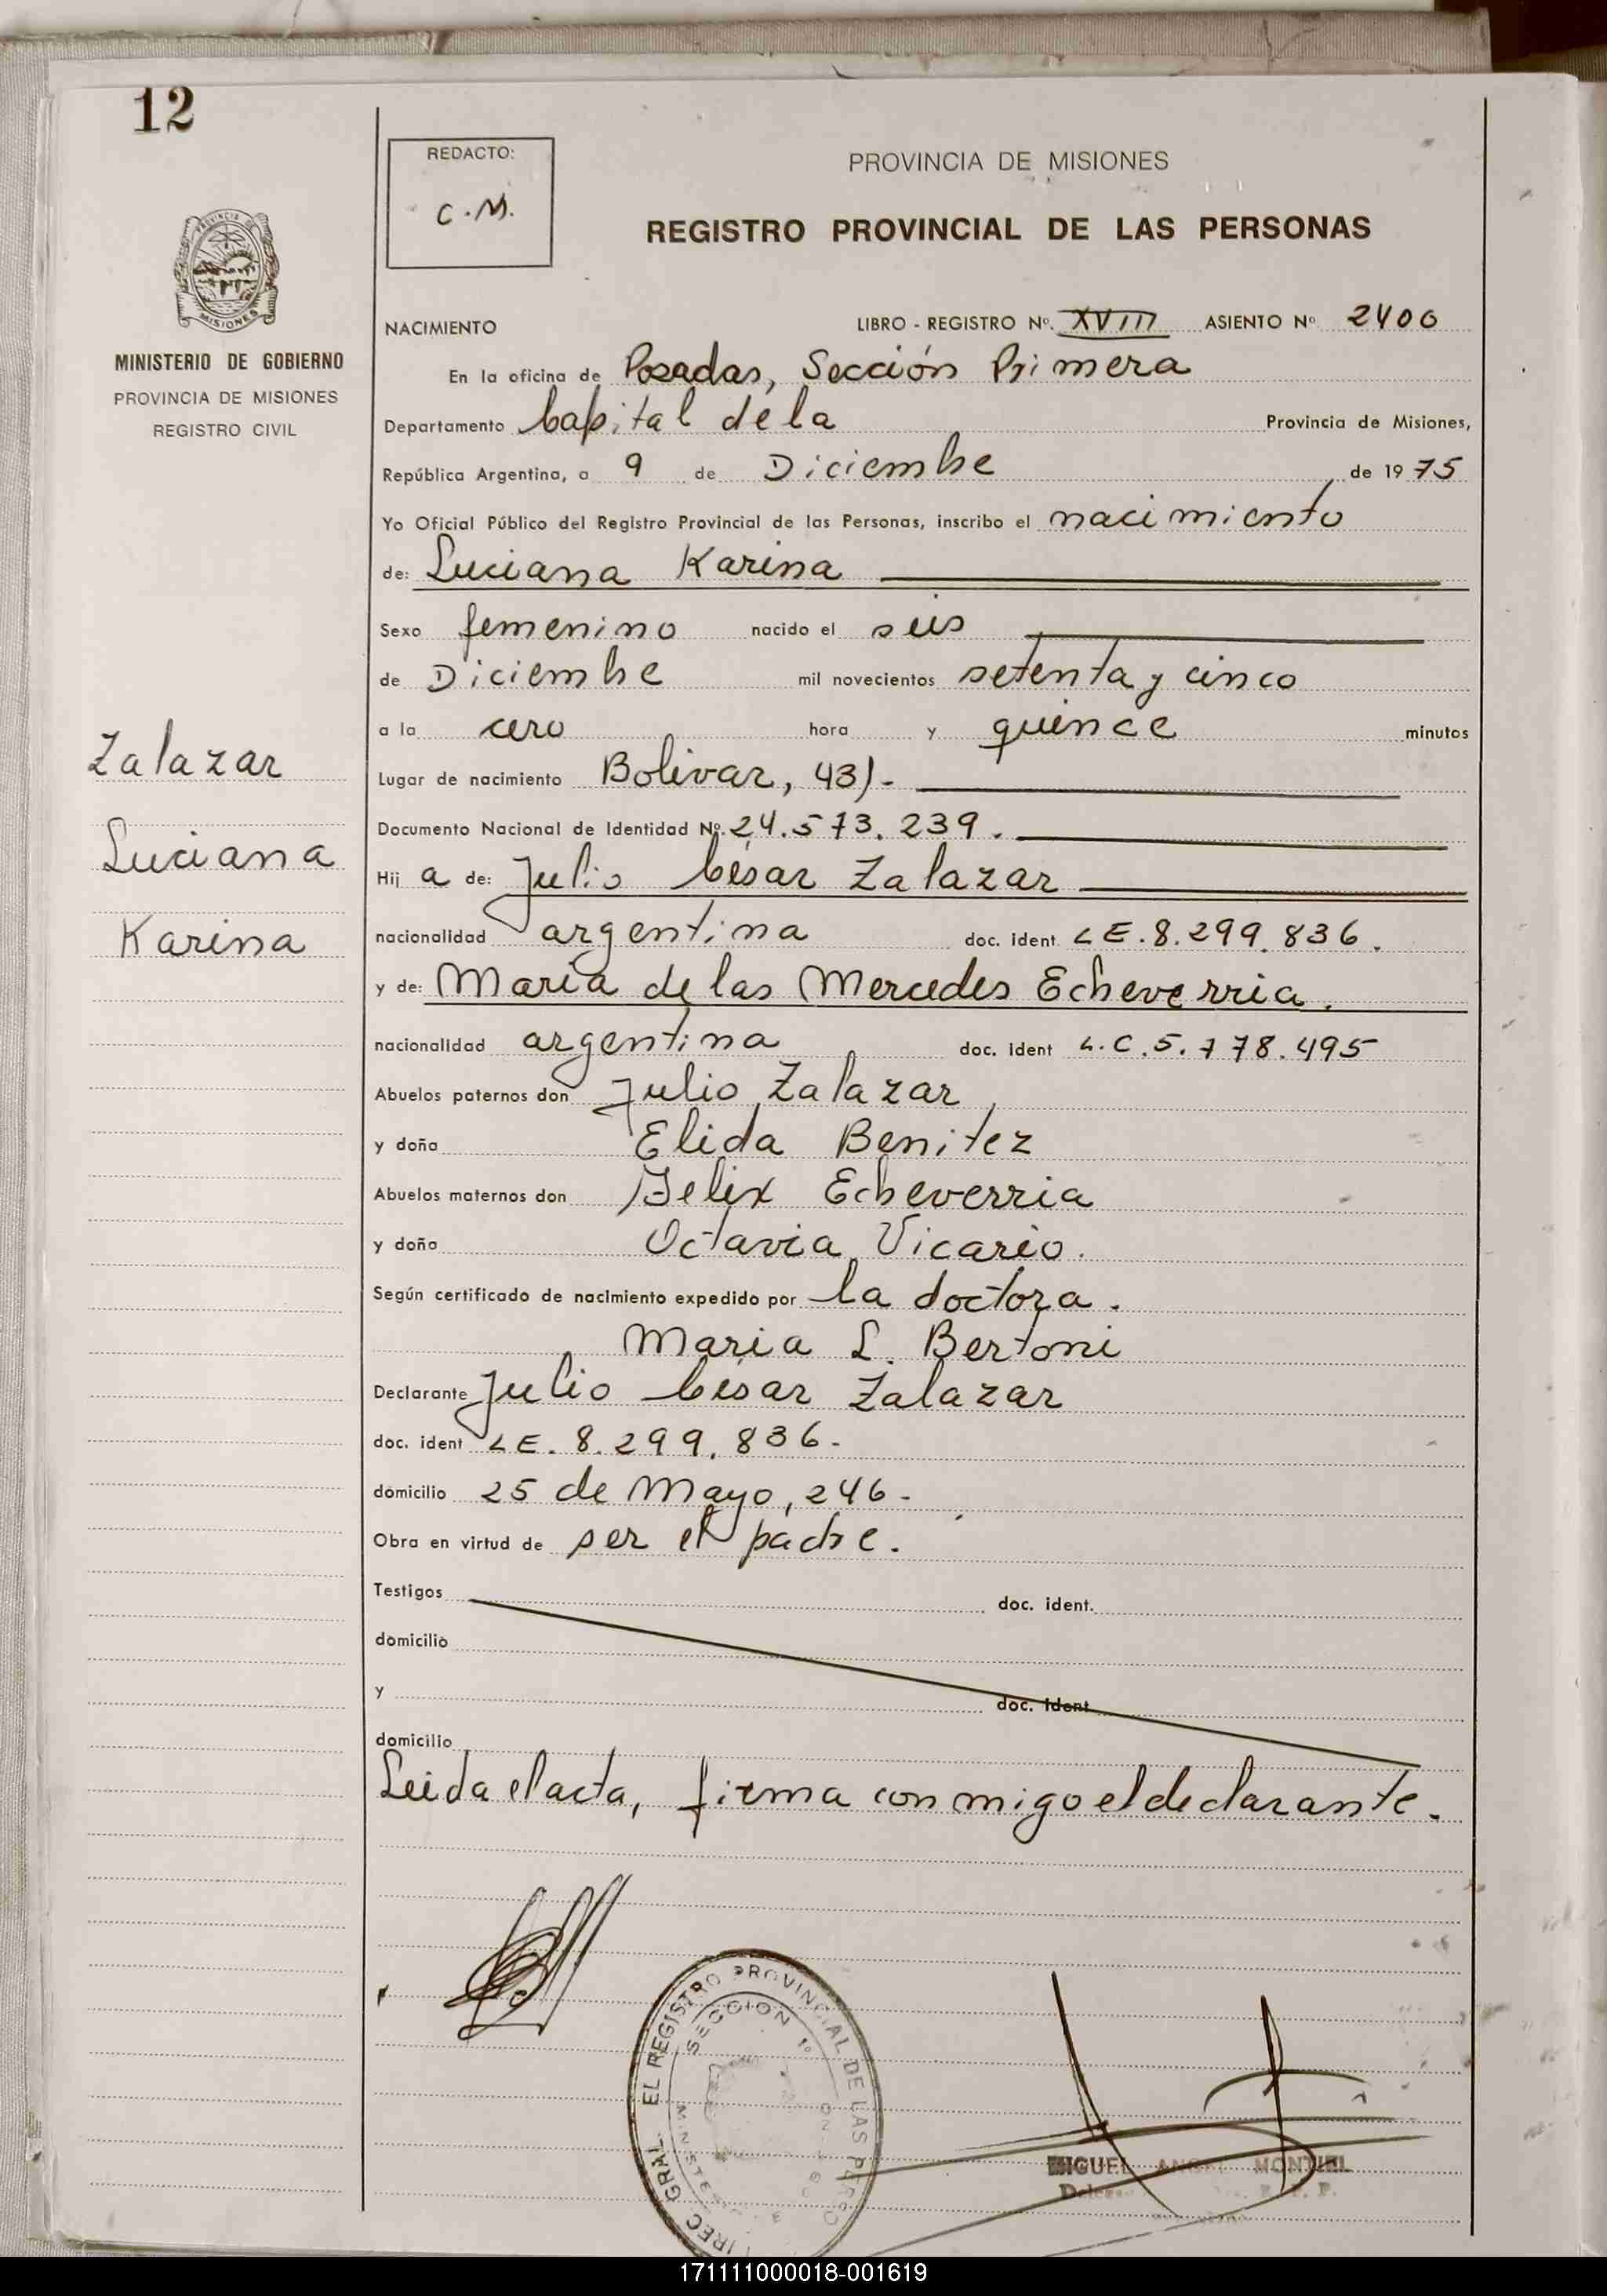 12
REDACTO:
C.M.
PROVINCIA DE MISIONES
REGISTRO PROVINCIAL DE LAS PERSONAS
MINISTERIO DE GOBIERNO
PROVINCIA DE MISIONES
REGISTRO CIVIL
Zalazar
Luciana
Karina
NACIMIENTO LIBRO - REGISTRO Nº. XVIII ASIENTO Nº 2400
En la oficina de Posadas, Sección Primera
Departamento Capital de la Provincia de Misiones,
República Argentina, a 9 de Diciembre de 1975
Yo Oficial Público del Registro Provincial de las Personas, inscribo el nacimiento
de: Luciana Karina
Sexo femenino nacido el seis
de Diciembre mil novecientos setenta y cinco
a la cero hora y quince minutos
Lugar de nacimiento Bolivar,
Documento Nacional de Identidad Nº. 24.573.239.
Hij a de: Julio César Zalazar
nacionalidad argentina doc. ident. LE.8.299.836.
y de: Maria de las Mercedes Echeverria.
nacionalidad argentina doc. ident L.C.5.778.495
Abuelos paternos don Julio Zalazar
y doña Elida Benitez
Abuelos maternos don Felix Echeverria
y doña Octavia Vicario.
Según certificado de nacimiento expedido por la doctora.
Maria L. Bertoni
Declarante Julio César Zalazar
doc. ident LE. 8.299.836-
domicilio 25 de Mayo, 246-
Obra en virtud de ser el padre.
Testigos doc. ident.
domicilio
y doc. ident
domicilio
Leida el acta, firma conmigo el declarante.
EL REGISTRO PROVINCIAL DE LAS
SECCION 1º
GRAL.
MIGUEL ANGEL MONTIEL
171111000018-001619